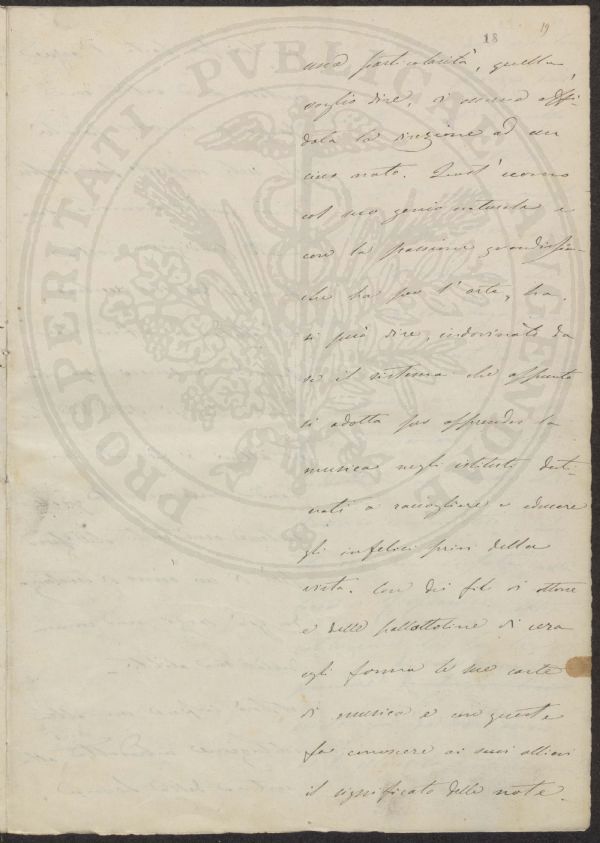 18
19
una particolarità, quella
voglio dire, di essersi affi-
data la direzione ad un
cieco nato. Quest'uomo
col suo genio naturale e
con la passione grandissima
che ha per l'arte, ha,
si può dire, indovinato da
sé il sistema che appunto
si adotta per apprender la
musica negli istituti desti-
nati a raccogliere e educare
gli infelici privi della
vista. Con dei fili di ottone
e delle pallottoline di cera
egli forma le sue carte
di musica e con queste
fa conoscere ai suoi allievi
il significato delle note.
PROSPERITATI PVBLICAE AVGENDAE